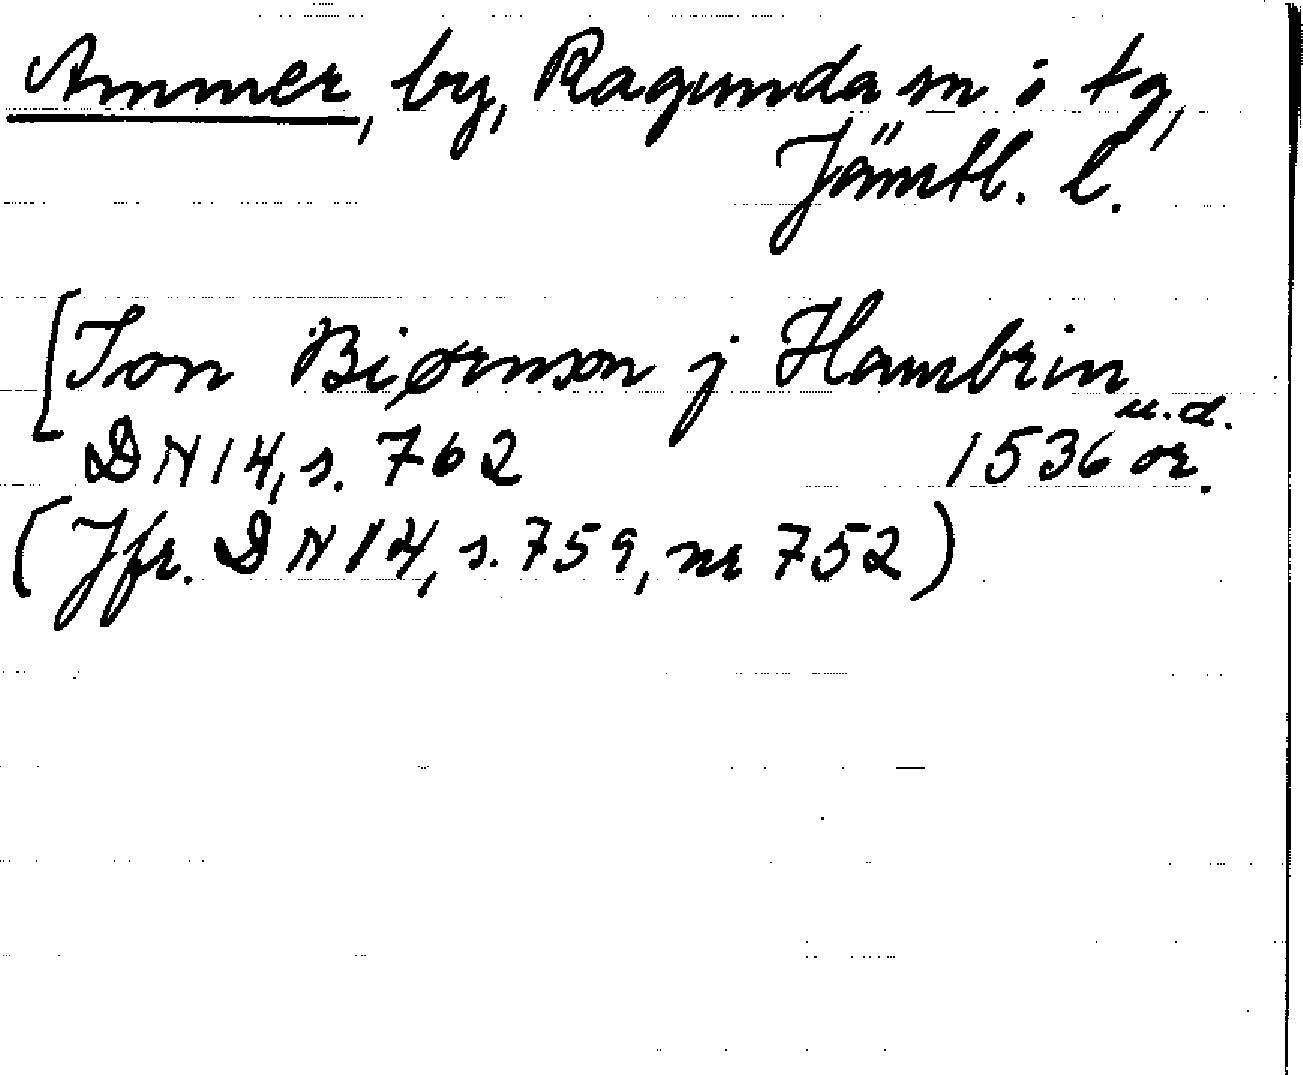 Ammer, by, Ragunda sn o tg,
Jämtl. l.
[Ion Biørnson j Hambrin
u.d.
DN 14, s. 762 1536 or.
(Jfr. DN 14, s. 759, nr 752)